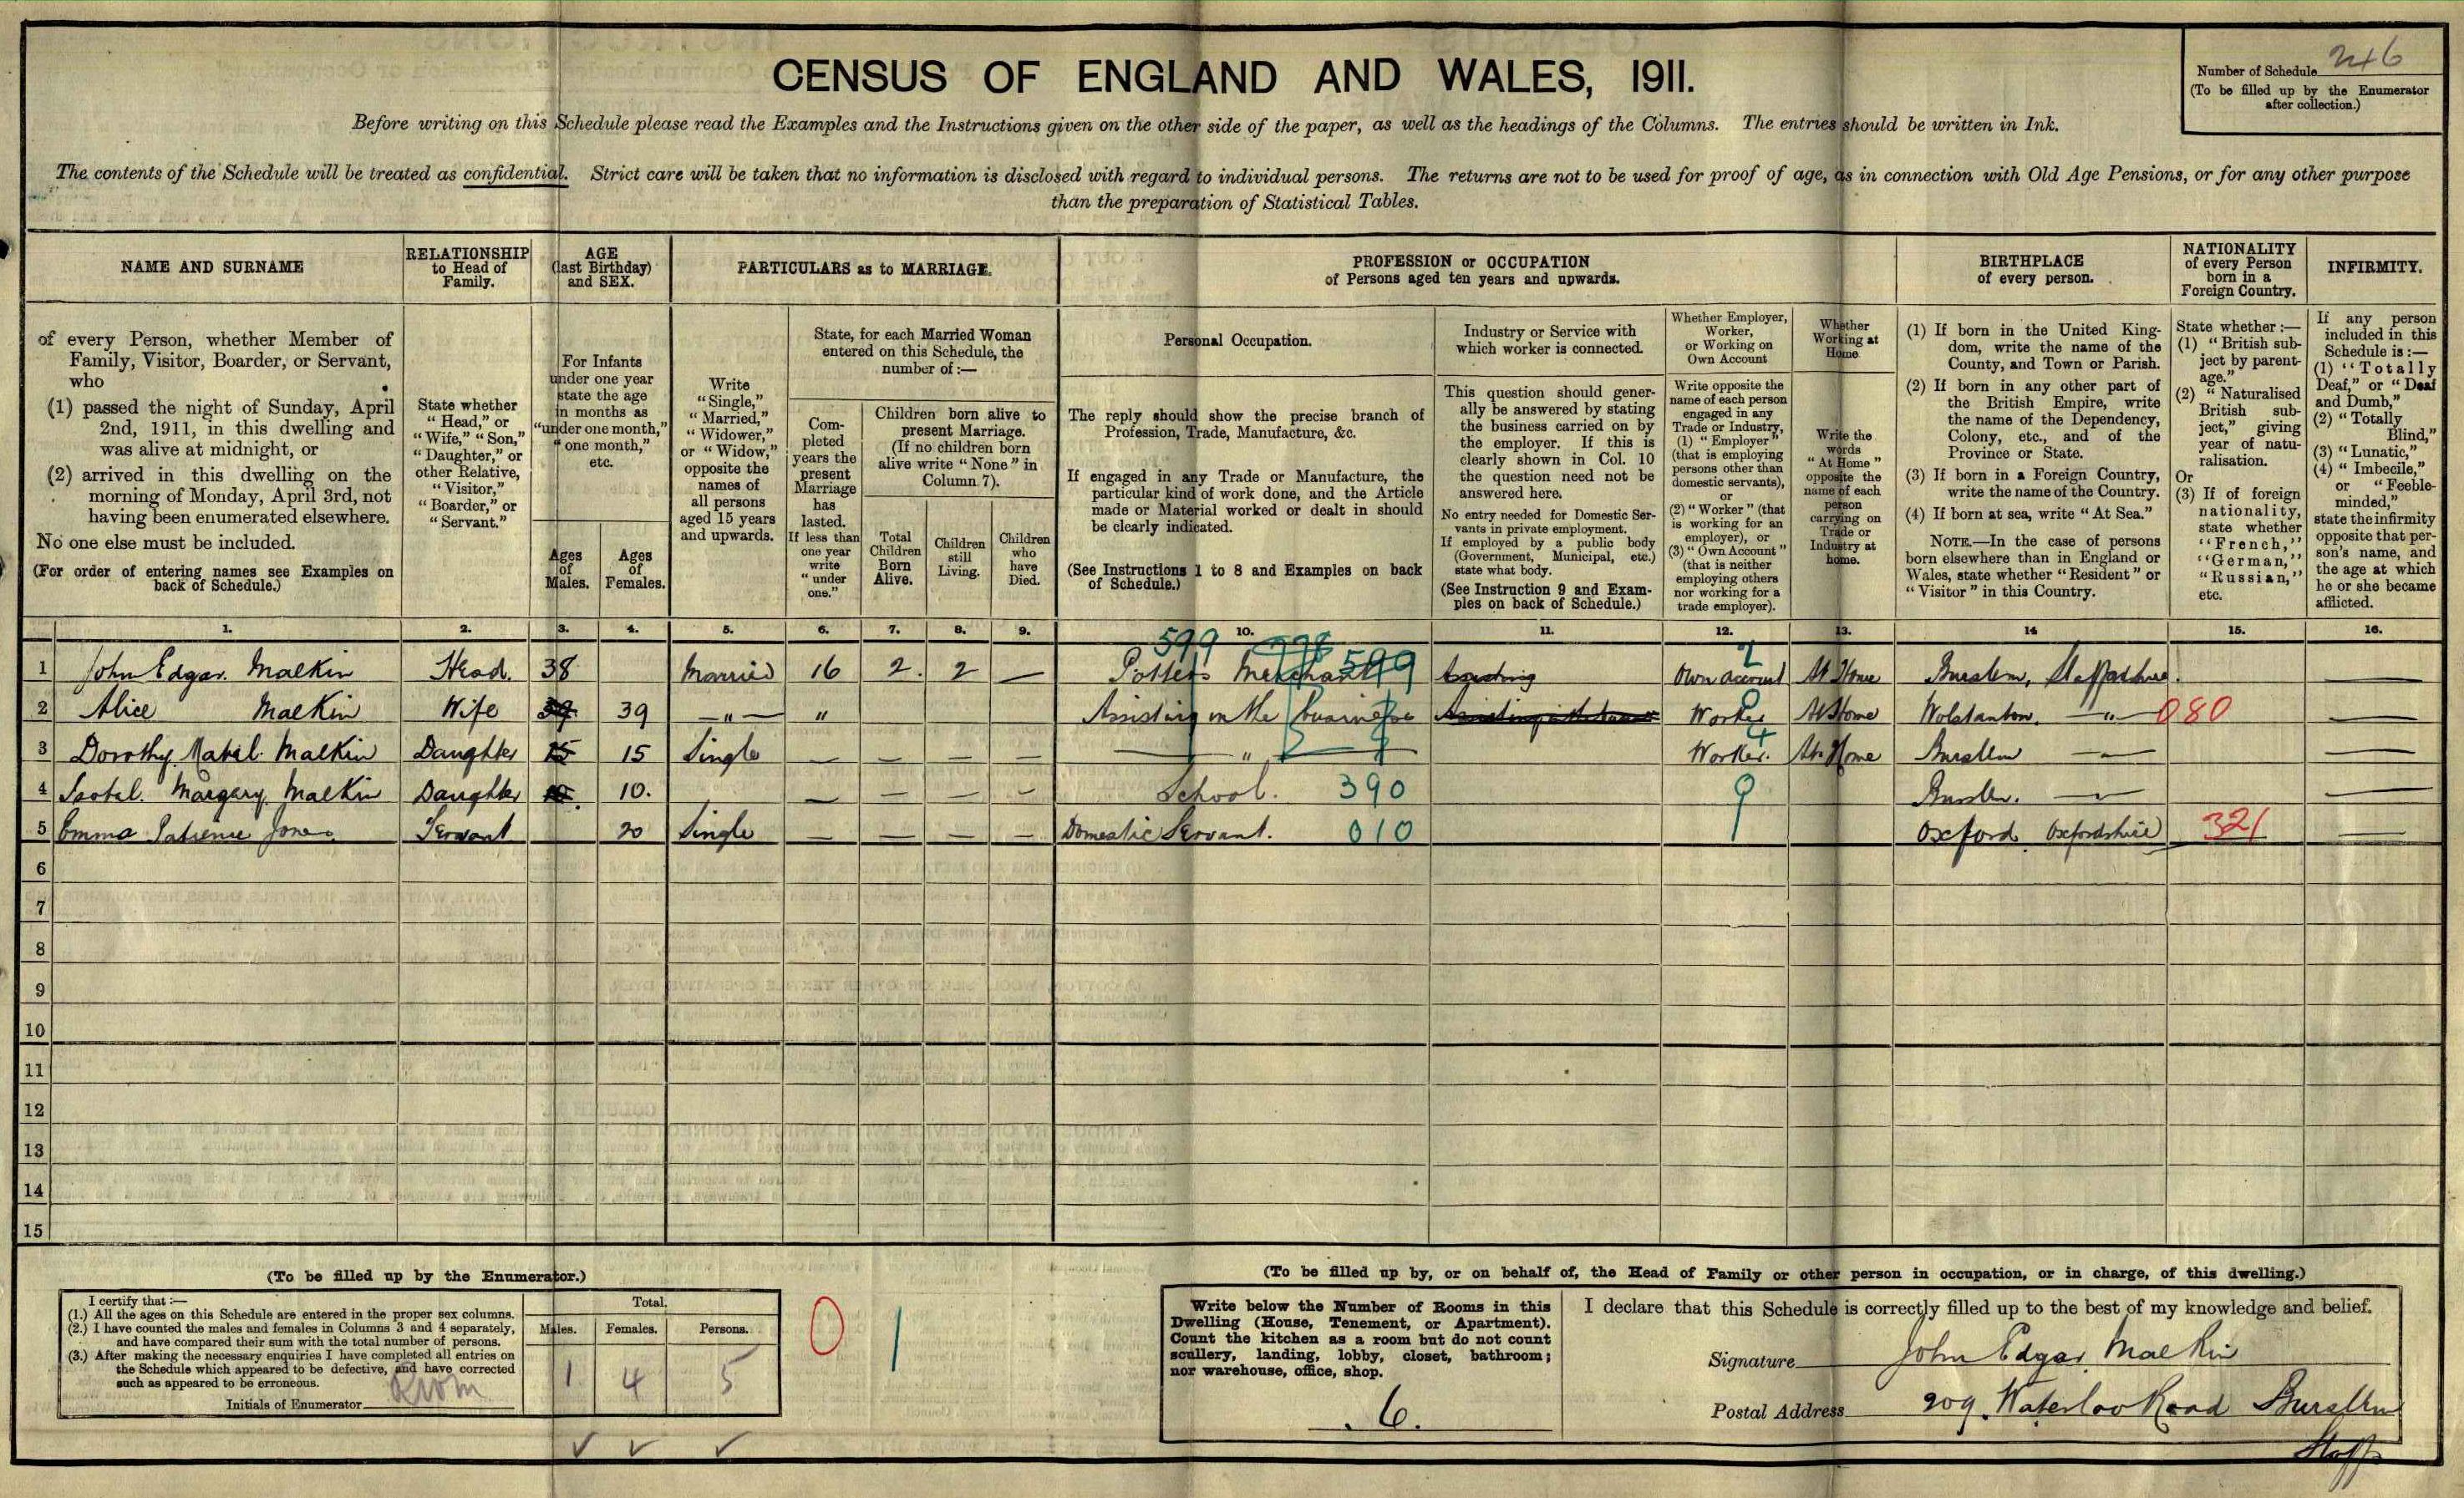 CENSUS OF ENGLAND AND WALES, 1911.
Number of Schedule 246
(To be filled up by the Enumerator
after collection.)
Before writing on this Schedule please read the Examples and the Instructions given on the other side of the paper, as well as the headings of the Columns. The entries should be written in Ink.
The contents of the Schedule will be treated as confidential. Strict care will be taken that no information is disclosed with regard to individual persons. The returns are not to be used for proof of age, as in connection with Old Age Pensions, or for any other purpose
than the preparation of Statistical Tables.
NAME AND SURNAME
of every Person, whether Member of
Family, Visitor, Boarder, or Servant,
who
(1) passed the night of Sunday, April
2nd, 1911, in this dwelling and
was alive at midnight, or
(2) arrived in this dwelling on the
morning of Monday, April 3rd, not
having been enumerated elsewhere.
No one else must be included.
(For order of entering names see Examples on
back of Schedule.)
RELATIONSHIP
to Head of
Family.
State whether
"Head," or
"Wife," "Son,"
"Daughter," or
other Relative,
"Visitor,"
"Boarder," or
"Servant."
AGE
(last Birthday)
and SEX.
For Infants
under one year
state the age
in months as
"under one month,"
"one month,"
etc.
Ages
of
Males.
Ages
of
Females.
PARTICULARS as to MARRIAGE.
Write
"Single,"
"Married,"
"Widower,"
or "Widow,"
opposite the
names of
all persons
aged 15 years
and upwards.
State, for each Married Woman
entered on this Schedule, the
number of :—
Com-
pleted
years the
present
Marriage
has
lasted.
If less than
one year
write
"under
one."
Children born alive to
present Marriage.
(If no children born
alive write "None" in
Column 7).
Total
Children
Born
Alive.
Children
still
Living.
Children
who
have
Died.
PROFESSION or OCCUPATION
of Persons aged ten years and upwards.
Personal Occupation.
The reply should show the precise branch of
Profession, Trade, Manufacture, &c.
If engaged in any Trade or Manufacture, the
particular kind of work done, and the Article
made or Material worked or dealt in should
be clearly indicated.
(See Instructions 1 to 8 and Examples on back
of Schedule.)
Industry or Service with
which worker is connected.
This question should gener-
ally be answered by stating
the business carried on by
the employer. If this is
clearly shown in Col. 10
the question need not be
answered here.
No entry needed for Domestic Ser-
vants in private employment.
If employed by a public body
(Government, Municipal, etc.)
state what body.
(See Instruction 9 and Exam-
ples on back of Schedule.)
Whether Employer,
Worker,
or Working on
Own Account
Write opposite the
name of each person
engaged in any
Trade or Industry,
(1) "Employer"
(that is employing
persons other than
domestic servants),
or
(2) "Worker" (that
is working for an
employer), or
(3) "Own Account"
(that is neither
employing others
nor working for a
trade employer).
Whether
Working at
Home.
Write the
words
"At Home"
opposite the
name of each
person
carrying on
Trade or
Industry at
home.
BIRTHPLACE
of every person.
(1) If born in the United King-
dom, write the name of the
County, and Town or Parish.
(2) If born in any other part of
the British Empire, write
the name of the Dependency,
Colony, etc., and of the
Province or State.
(3) If born in a Foreign Country,
write the name of the Country.
(4) If born at sea, write "At Sea."
NOTE.—In the case of persons
born elsewhere than in England or
Wales, state whether "Resident" or
"Visitor" in this Country.
NATIONALITY
of every Person
born in a
Foreign Country.
State whether :—
(1) "British sub-
ject by parent-
age."
(2) "Naturalised
British sub-
ject," giving
year of natu-
ralisation.
Or
(3) If of foreign
nationality,
state whether
"French,"
"German,"
"Russian,"
etc.
INFIRMITY.
If any person
included in this
Schedule is :—
(1) "Totally
Deaf," or "Deaf
and Dumb,"
(2) "Totally
Blind,"
(3) "Lunatic,"
(4) "Imbecile,"
or "Feeble-
minded,"
state the infirmity
opposite that per-
son's name, and
the age at which
he or she became
afflicted.
1. 2. 3. 4. 5. 6. 7. 8. 9. 10. 11. 12. 13. 14 15. 16.
1 John Edgar Malkin Head. 38 Married 16 2. 2 — Potters Merchant 599 Own account At Home Burslem, Staffordshire. —
2 Alice Malkin Wife 39 —"— " Assisting in the business Worker At Home Wolstanton. —"— 080 —
3 Dorothy Mabel Malkin Daughter 15 Single — — — — —"— Worker. At Home Burslem — —
4 Margary Malkin Daughter 10. — — — — School. 390 9 Burslem. — —
5 Emma Patience Jones Servant 20 Single — — — — Domestic Servant. 010 Oxford Oxfordshire 321 —
6
7
8
9
10
11
12
13
14
15
(To be filled up by the Enumerator.)
I certify that :—
(1.) All the ages on this Schedule are entered in the proper sex columns.
(2.) I have counted the males and females in Columns 3 and 4 separately,
and have compared their sum with the total number of persons.
(3.) After making the necessary enquiries I have completed all entries on
the Schedule which appeared to be defective, and have corrected
such as appeared to be erroneous.
Initials of Enumerator
Total.
Males. Females. Persons.
1 4 5
0 1
(To be filled up by, or on behalf of, the Head of Family or other person in occupation, or in charge, of this dwelling.)
Write below the Number of Rooms in this
Dwelling (House, Tenement, or Apartment).
Count the kitchen as a room but do not count
scullery, landing, lobby, closet, bathroom;
nor warehouse, office, shop.
6.
I declare that this Schedule is correctly filled up to the best of my knowledge and belief.
Signature John Edgar Malkin
Postal Address 209. Waterloo Road Burslem
Staffs